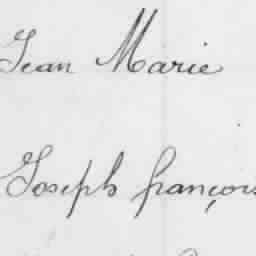 Jean Marie
Joseph françois